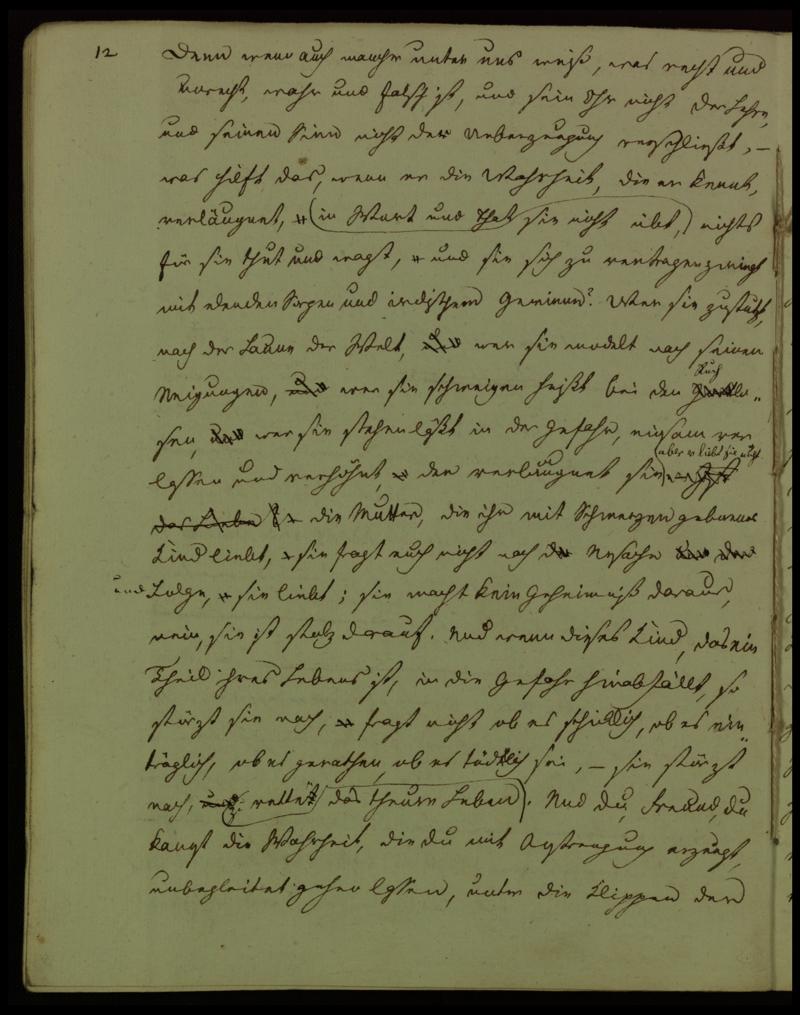 12
Denn wenn auch mancher unter uns weiß, was recht und
Unrecht, wahr und falsch ist, und sein Ohr nicht der Lehre,
und seinen Sinn nicht der Ueberzeugung verschließt, –
was hilft das, wenn er die Wahrheit, die er kennt,
verläugnet, (in Wort und That sie nicht übt,) nichts
für sie thut und wagt, und sie sich zu vertragen zwingt
mit elenden Sorgen und irdischem Gewinne? Wer sie zustutzt,
nach der Laune der Welt, wer sie modelt nach seinen
Neigungen, wer sie schweigen heißt bei den
Ruch
sen, wer sie stehen läßt in der Gefahr, einsam ver
(aber er liebt sie nicht
lassen und verhöhnt, der verläugnet sie
das Liebe die Mutter, die ihr mit Schmerzen geborenes
Kind liebt, sie fragt euch nicht nach der Ursache
und Folge, sie liebt; sie macht kein Geheimniß daraus,
nein, sie ist stolz darauf. Und wenn dieses Kind, das ein
Theil ihres Lebens ist, in die Gefahr hinabfällt, so
stürzt sie nach, fragt nicht ob es schicklich, ob es ein
träglich, ob es gerathen, ob es tödtlich sei, – sie stürzt
nach, rettet (das theure Leben). Und du, Freund, du
kanst die Wahrheit, die du mit Anstrengung erzeugt,
unbegleitet gehen lassen, unter die Klippen der